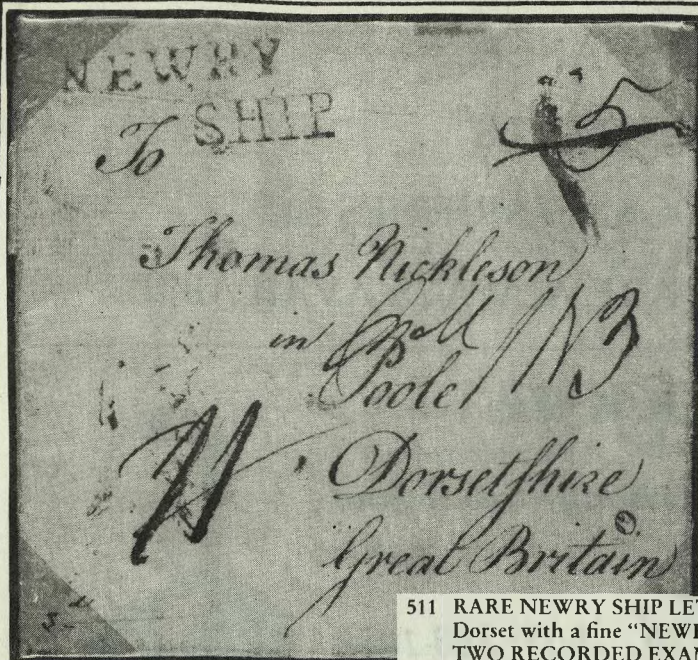 NEWRY
SHIP
5
To
Thomas Nickleson
in
Poole
Dorsetshire
Great Britain
511 RARE NEWRY SHIP LE
Dorset with a fine “NEW
TWO RECORDED EXA